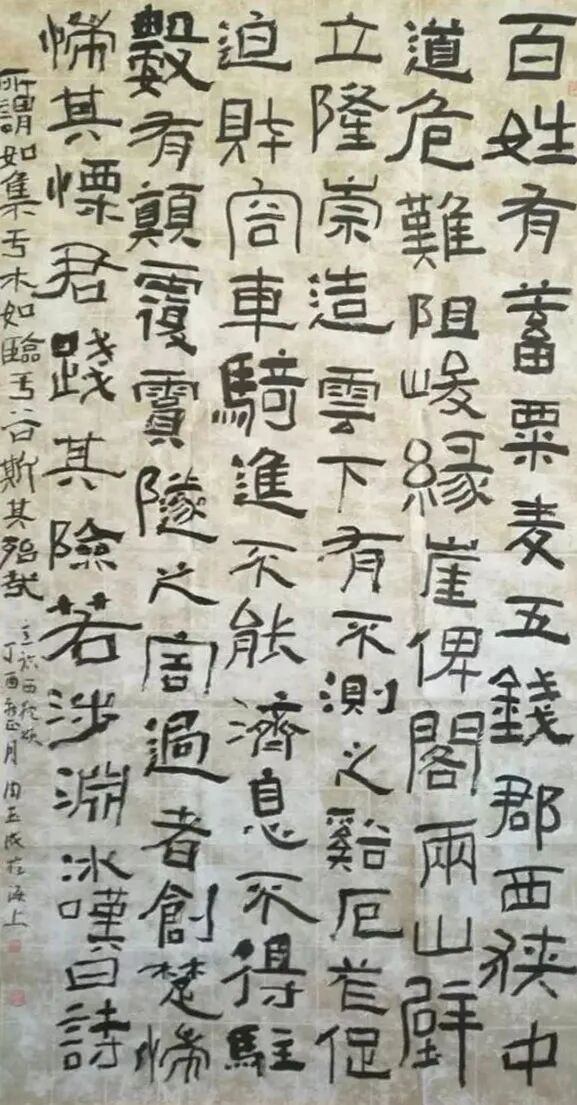 百姓有蓄粟麦五錢郡西狹中
道危難阻峻緣崖俾閣兩山壁
立隆崇造雲下有不測之谿厄笮促
迫財容車騎進不能濟息不得駐
數有顛覆霣隧之害過者創楚惴
惴其慄君踐其險若涉淵冰嘆曰詩
所謂如集于木如臨于谷斯其殆哉
西狹頌
丁酉月於海上